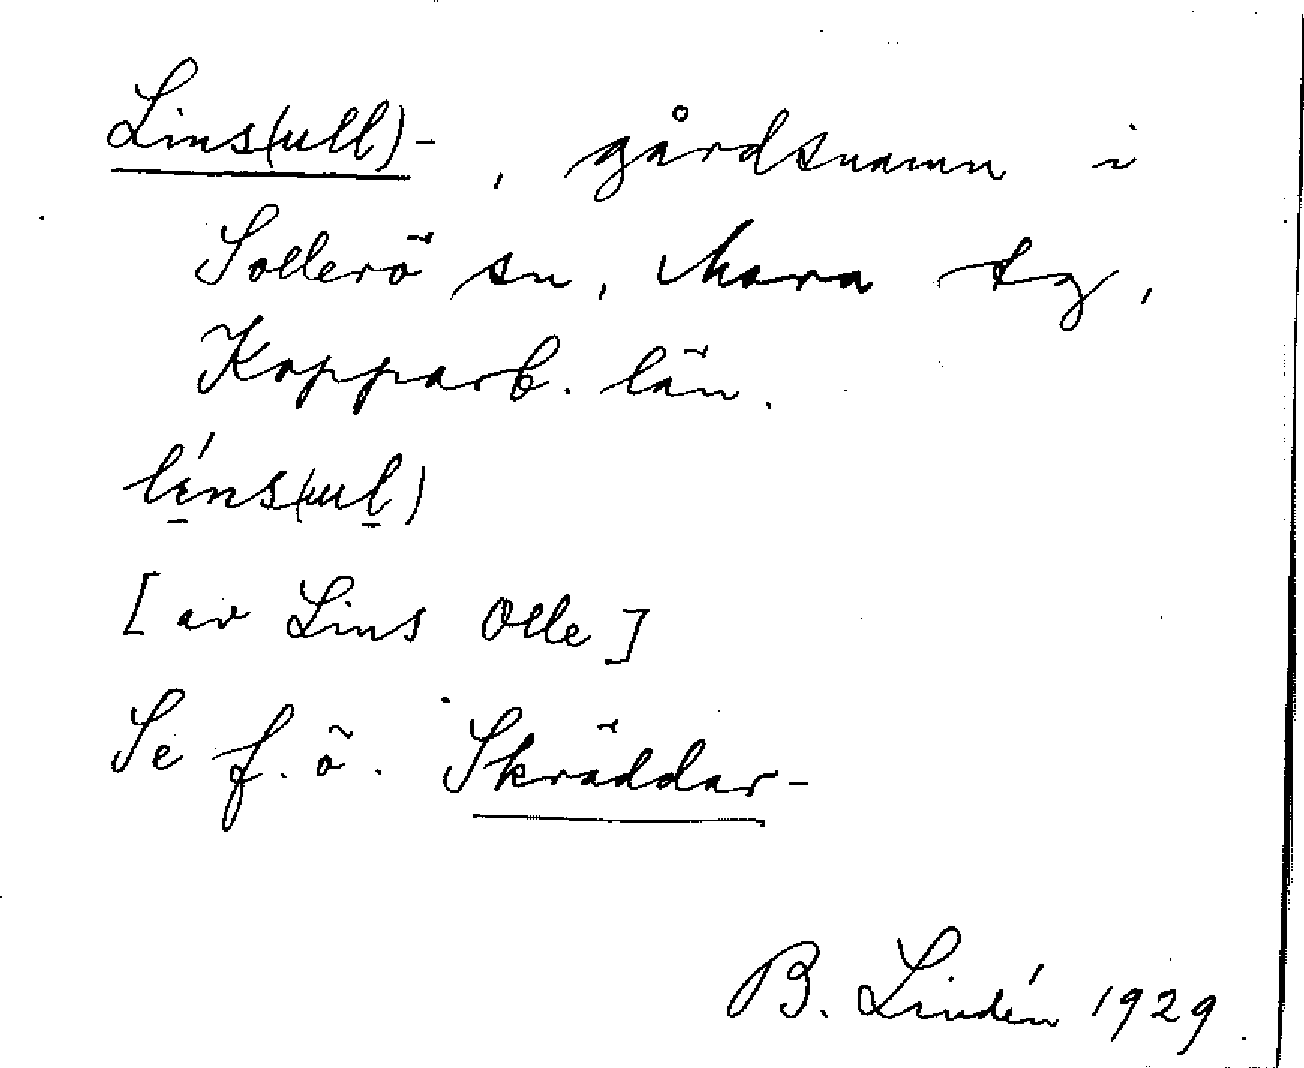 Lins(ull)-, gårdsnamn i
Sollerö sn, Mora tg,
Kopparb. län.
líns(ul)
[av Lins Olle]
Se f. ö. Skräddar-
B. Lindén 1929